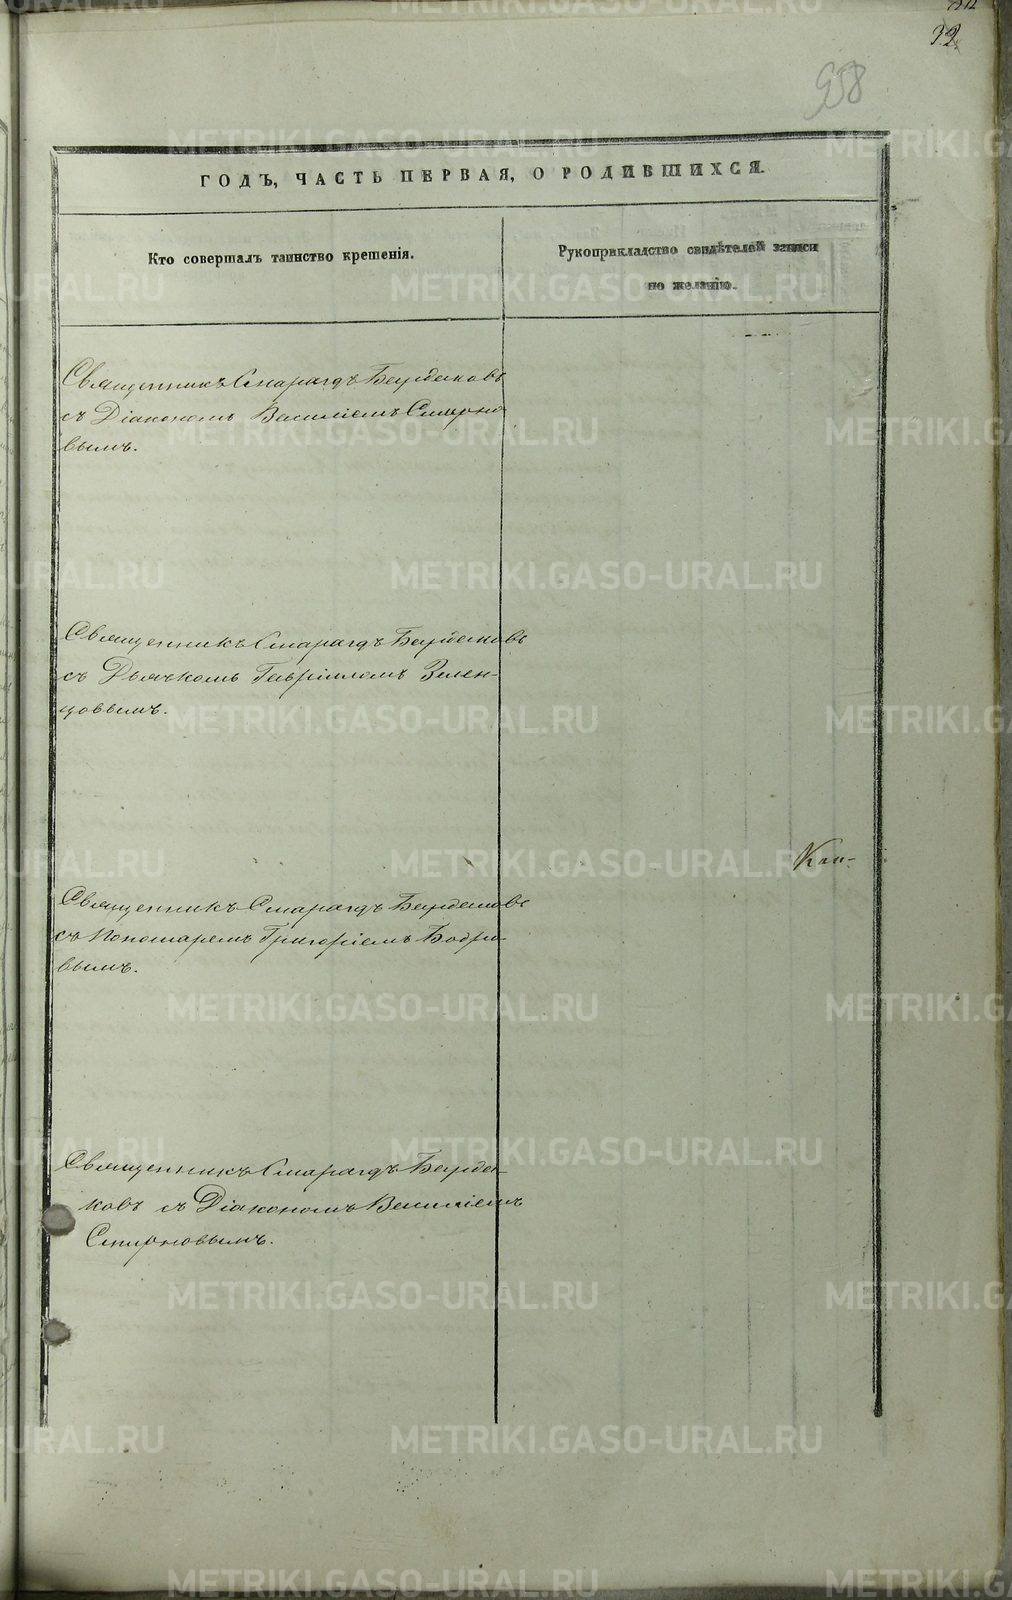 32
958
ГОДЪ, ЧАСТЬ ПЕРВАЯ, О РОДИВШИХСЯ.
Кто совершалъ таинство крещенія.
Рукоприкладство свидѣтелей записи
по желанію.
Священникъ Смарагдъ Бурденовъ
съ Діакономъ Василіемъ Смирно-
вымъ.
Священникъ Смарагдъ
съ Дьячкомъ Гавріиломъ Зелен-
цовымъ.
Кол-
Священникъ Смарагдъ
съ Пономаремъ Григоріемъ Бодро-
вымъ.
Священникъ Смарагдъ
ковъ съ Діакономъ Василіемъ
Смирновымъ.
METRIKI.GASO-URAL.RU